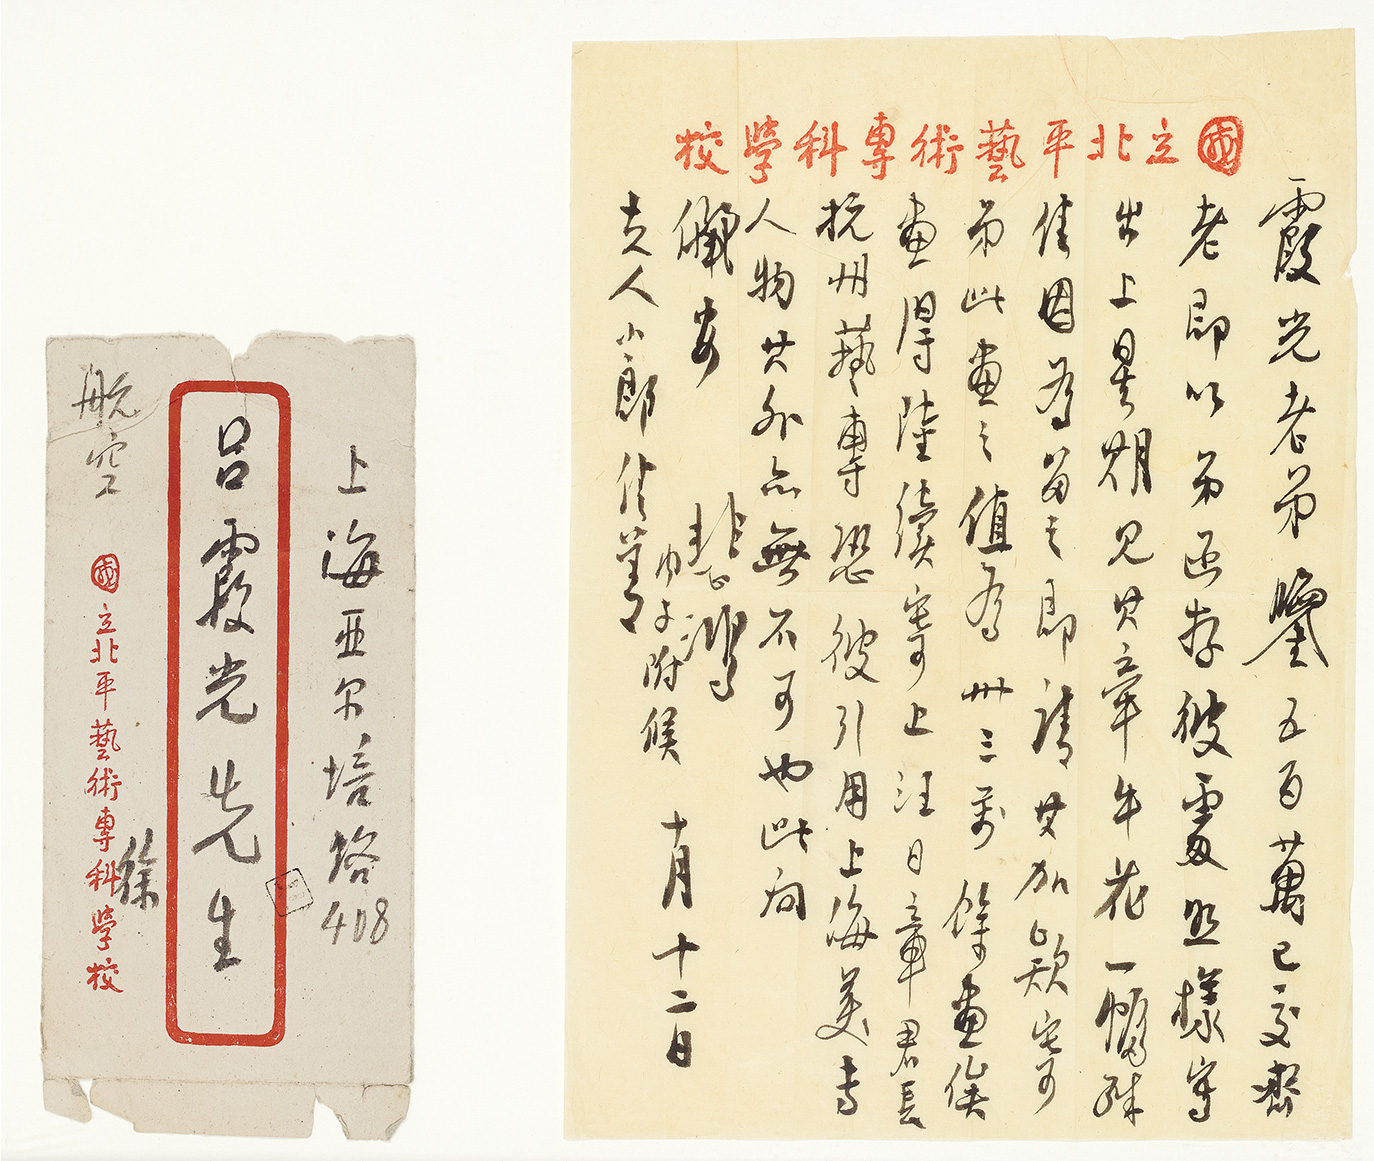 國立北平藝術專科學校
霞光老弟鑒五百萬已交齊
老即以弟函存彼處照樣寫
出上星期見其牽牛花一幅殊
佳因為留之即請其加題寄
弟此畫之值為卅三萬餘畫俟
畫得陸續寄上汪日章君長
杭州藝專恐彼引用上海美專
人物其外亦無不可也此問
儷安 悲鴻
夫人小郎佳善
內子附候 十月十二日
上海亚尔培路408
呂霞光先生
航空
國立北平藝術專科學校
徐